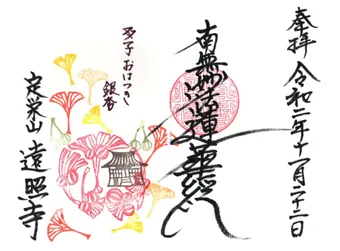 奉拝 令和二年十一月二十二日
南無妙法蓮華経
双子おはつき
銀杏
定栄山 遠照寺